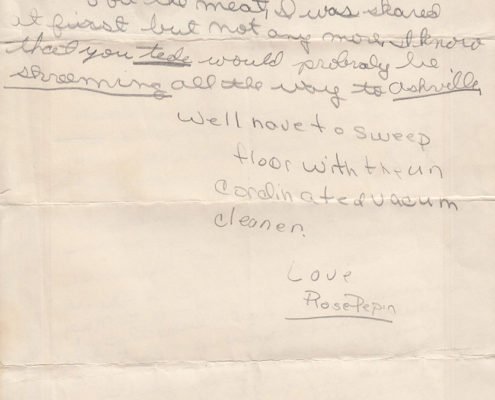 meat, I was skared
it first but not any more, I know
that you teds would probaly be
skreeming all the way to Ashville
Well have to sweep
floor with the un
cordinated vacum
cleaner.
Love
Rose Pepin